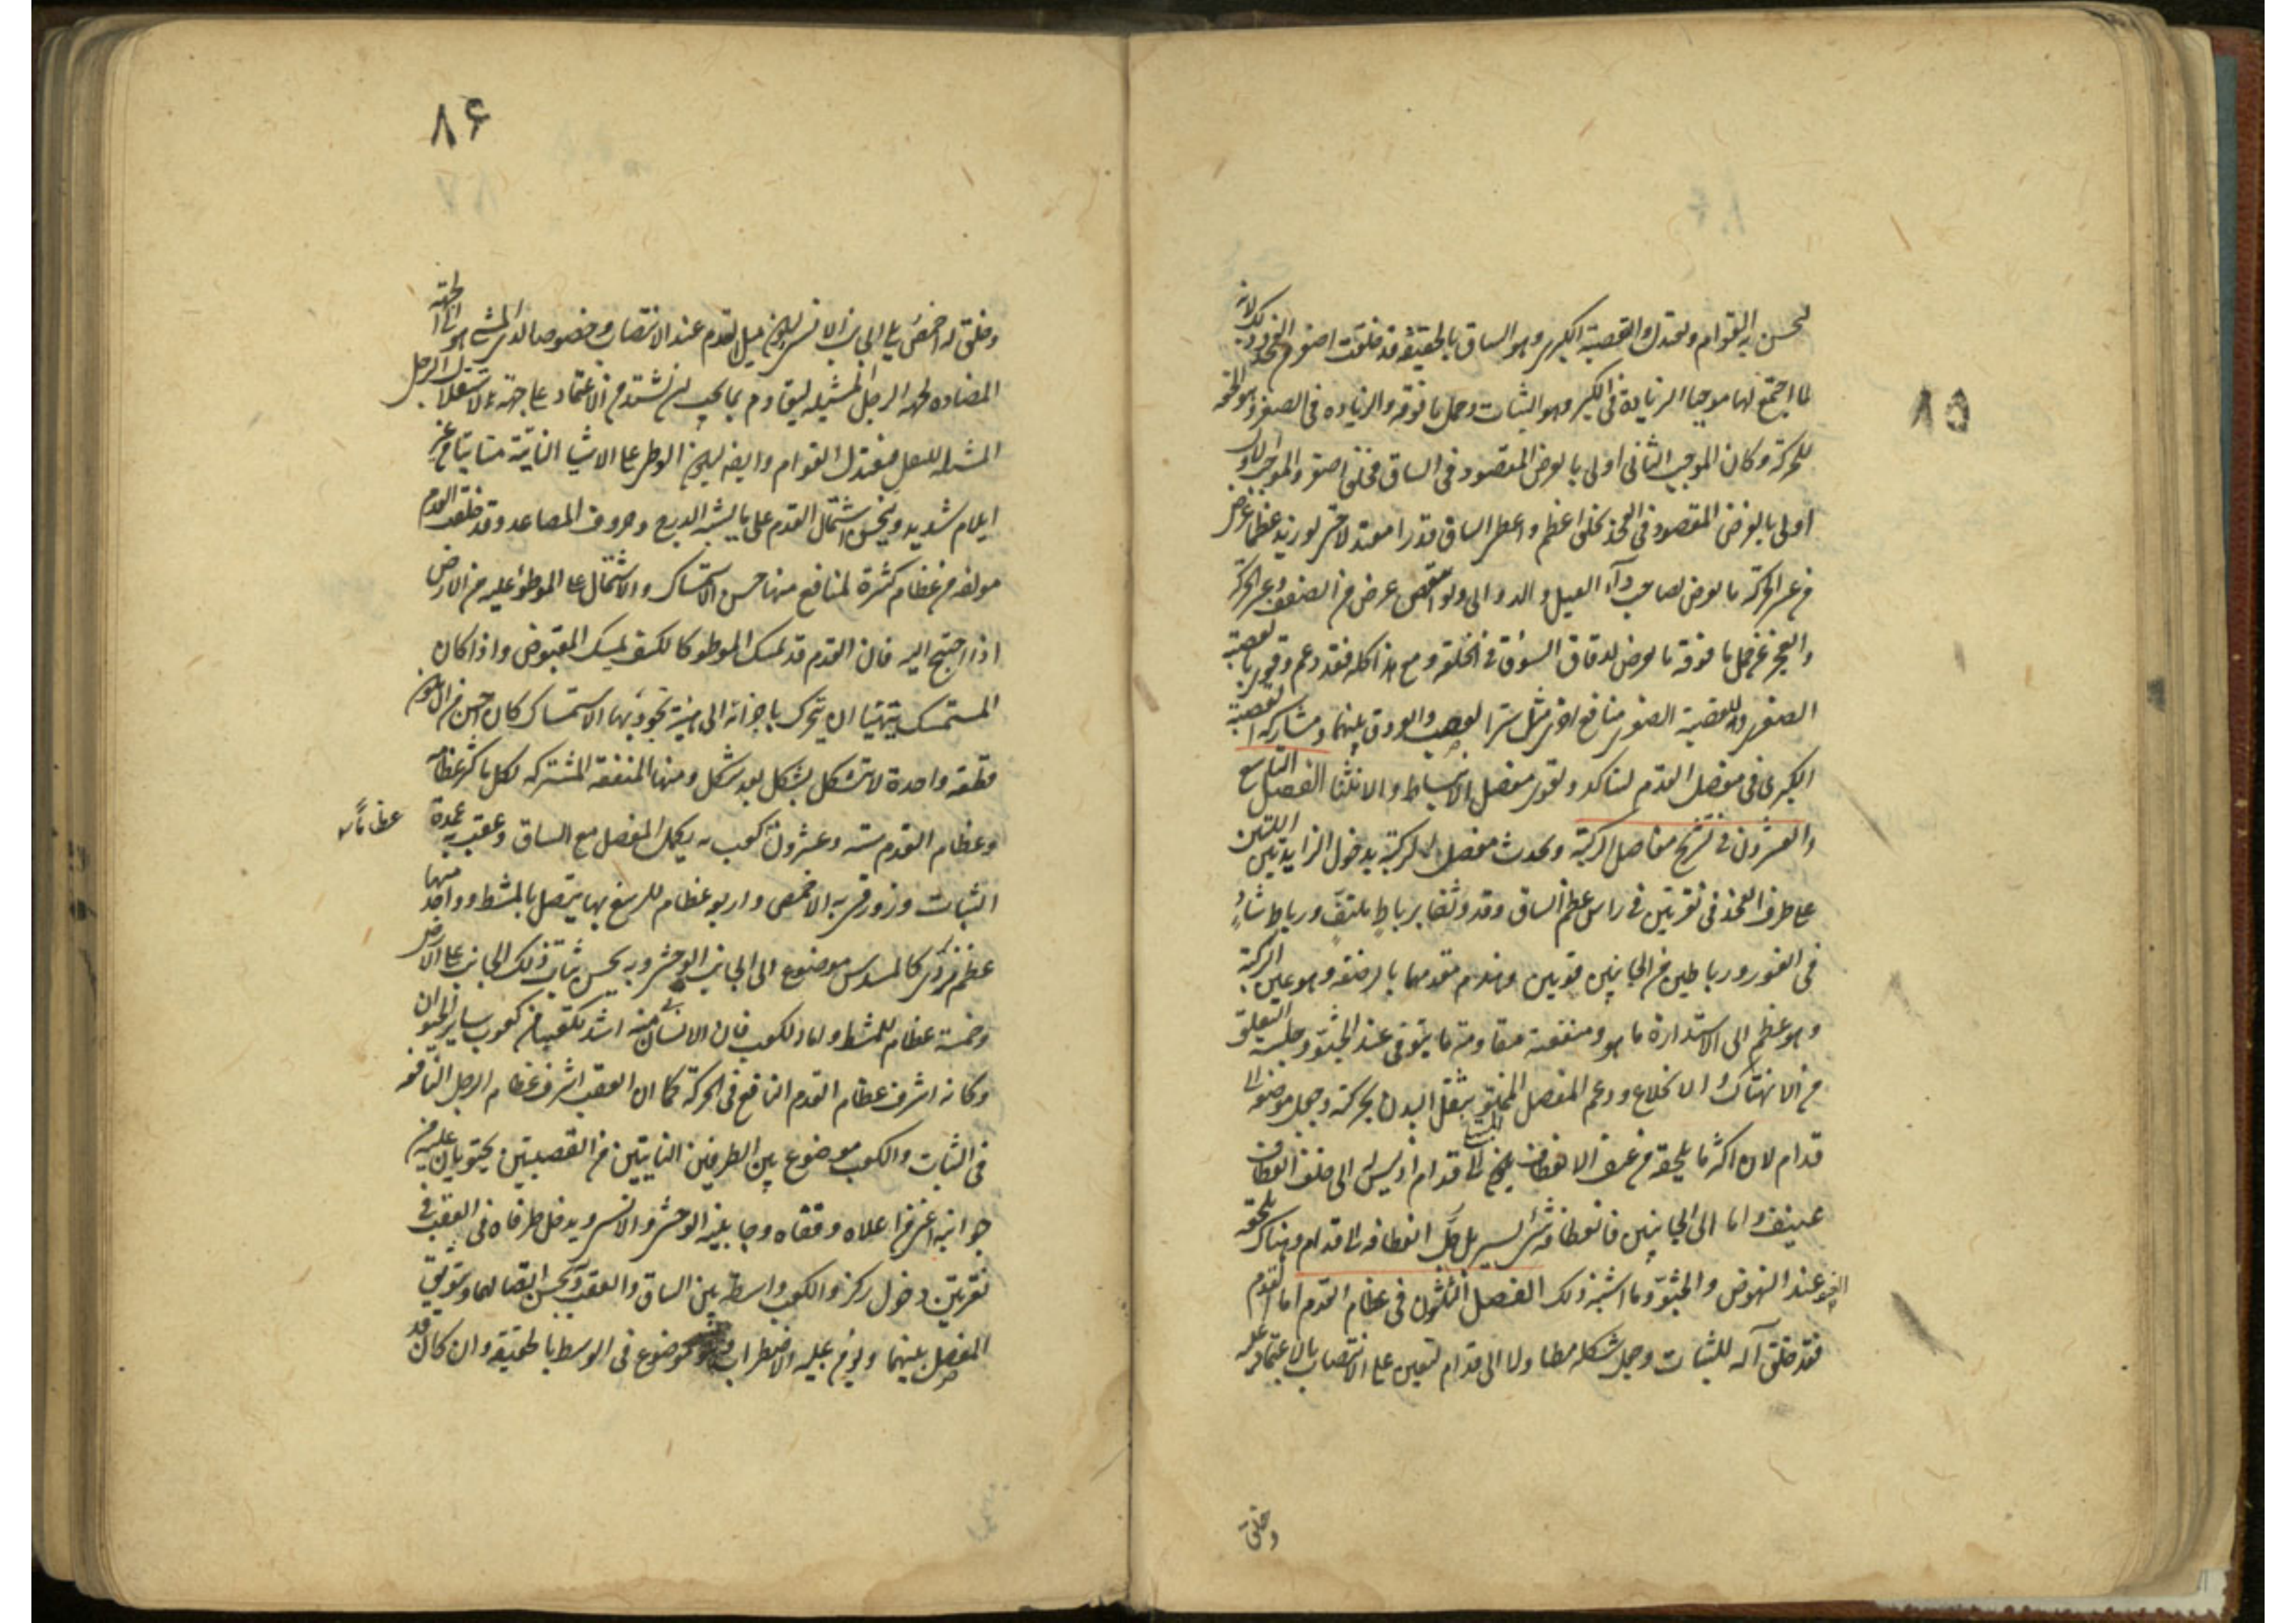 ٨٥
ليحسن به القوام ويعتدل والقصبة الكبرى وهو الساق بالحقيقة قد خلقت اصغر من الفخذ وذلك لانه
لما اجتمع لها موجبا الزيادة فى الكبر وهو الثبات وحمل ما فوقه والزيادة فى الصغر وهو الخفة
للحركة وكان الموجب الثانى اولى بالغرض المقصود فى الساق فخلق اصغر والموجب الاول
اولى بالغرض المقصود فى الفخذ فخلق اعظم واعطى الساق قدرا معتدلا حتى لو زيد عظما عرض
من عسر الحركة ما يعرض لصاحب داء الفيل والدوالى ولو انتقص عرض من الضعف وعسر الحركة
والعجز عن حمل ما فوقه ما يعرض لدقاق السوق فى الخلقة ومع هذا كله فقد دعم وقوى بالقصبة
الصغرى وللقصبة الصغرى منافع اخرى مثل ستر العصب والعروق بينهما ومشاركة القصبة
الكبرى فى مفصل القدم ليتاكد ويقوى مفصل الانبساط والانثنا الفصل التاسع
والعشرون فى تشريح مفاصل الركبة ويحدث مفصل الركبة بدخول الزايدتين اللتين
على طرف الفخذ فى نقرتين فى راس عظم الساق وقد وثقا برباط ملتف ورباط شاد
فى الغور ورباطين من الجانبين قويين وهندم مقدمهما بالرضفة وهو عين الركبة
وهو عظم الى الاستدارة ما هو ومنفعته مقاومة ما يتوقى عند الجثو وجلسة التعلق
من الانهتاك والانخلاع ودعم المفصل الممنو بثقل البدن بحركته وجعل موضعه الى
قدام لان اكثر ما يلحقه من عنف الانعطاف يكون الى قدام اذ ليس له الى خلف انعطاف
عنيف واما الى الجانبين فانعطافه شىء يسير بل جل انعطافه الى قدام وهناك يلحقه
العنف عند النهوض والجثو وما اشبه ذلك الفصل الثلثون فى عظام القدم اما القدم
فقد خلق آلة للثبات وجعل شكله مطاولا الى قدام ليعين على الانتصاب بالاعتماد عليه
وخلق
٨۶
وخلق له اخمص يلى الجانب الانسى ليكون ميل القدم عند الانتصاب وخصوصا لدى المشى هو الى الجهة
المضادة لجهة الرجل المشيلة ليقاوم بما يجب ان يشتد من الاعتماد على جهة لاستقلال الرجل
المشيلة للنقل فيعتدل القوام وايضه ليكون الوطى على الاشيا النابتة متاتيا من غير
ايلام شديد وليحسن اشتمال القدم على ما يشبه الدرج وحروف المصاعد وقد خلقت القدم
مولفة من عظام كثيرة لمنافع منها حسن الاستمساك والاشتمال على الموطوء عليه من الارض
اذا احتيج اليه فان القدم قد يمسك الموطو كالكف يمسك المقبوض واذا كان
المستمسك يتهيا ان يتحرك باجزائه الى هيئة يجود بها الاستمساك كان احسن من ان يكون
قطعة واحدة لا يتشكل بشكل بعد شكل ومنها المنفعة المشتركة لكل ما كثر عظامه
وعظام القدم ستة وعشرون كعب به يكمل المفصل مع الساق وعقب به عمدة
الثبات وزورقى به الاخمص واربع عظام للرسغ بها يتصل بالمشط وواحد منها
عظم نردى كالمسدس موضوع الى الجانب الوحشى وبه يحسن ثبات ذلك الجانب على الارض
وخمسة عظام للمشط واما الكعب فان الانسانى منه اشد تكعيبا من كعوب ساير الحيوان
وكانه اشرف عظام القدم النافع فى الحركة كما ان العقب اشرف عظام الرجل النافعة
فى الثبات والكعب موضوع بين الطرفين الناتيين من القصبتين يحتويان عليه من
جوانبه اعنى من اعلاه وقفاه وجانبيه الوحشى والانسى ويدخل طرفاه فى العقب فى
نقرتين دخول ركز والكعب واسطة بين الساق والعقب به يحسن اتصالهما ويتوثق
المفصل بينهما ويؤمن عليه الاضطراب وهو موضوع فى الوسط بالحقيقة وان كان قد